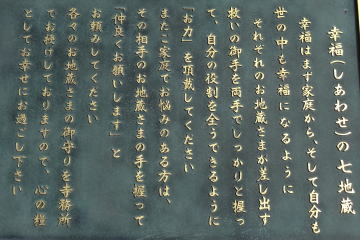 幸福(しあわせ)の七地蔵
幸福はまず家庭から、そして自分も
世の中も幸福になるように
それぞれのお地蔵さまが差し出す
救いの御手を両手でしっかりと握っ
て、自分の役割を全うできるように
「お力」を頂戴してください
またご家庭でお悩みのある方は、
その相手のお地蔵さまの手を握って
「仲良くお願いします」と
お頼みしてください
各々のお地蔵さまの御守りを寺務所
でお授けしておりますので、心の糧
としてお幸せにお過ごし下さい